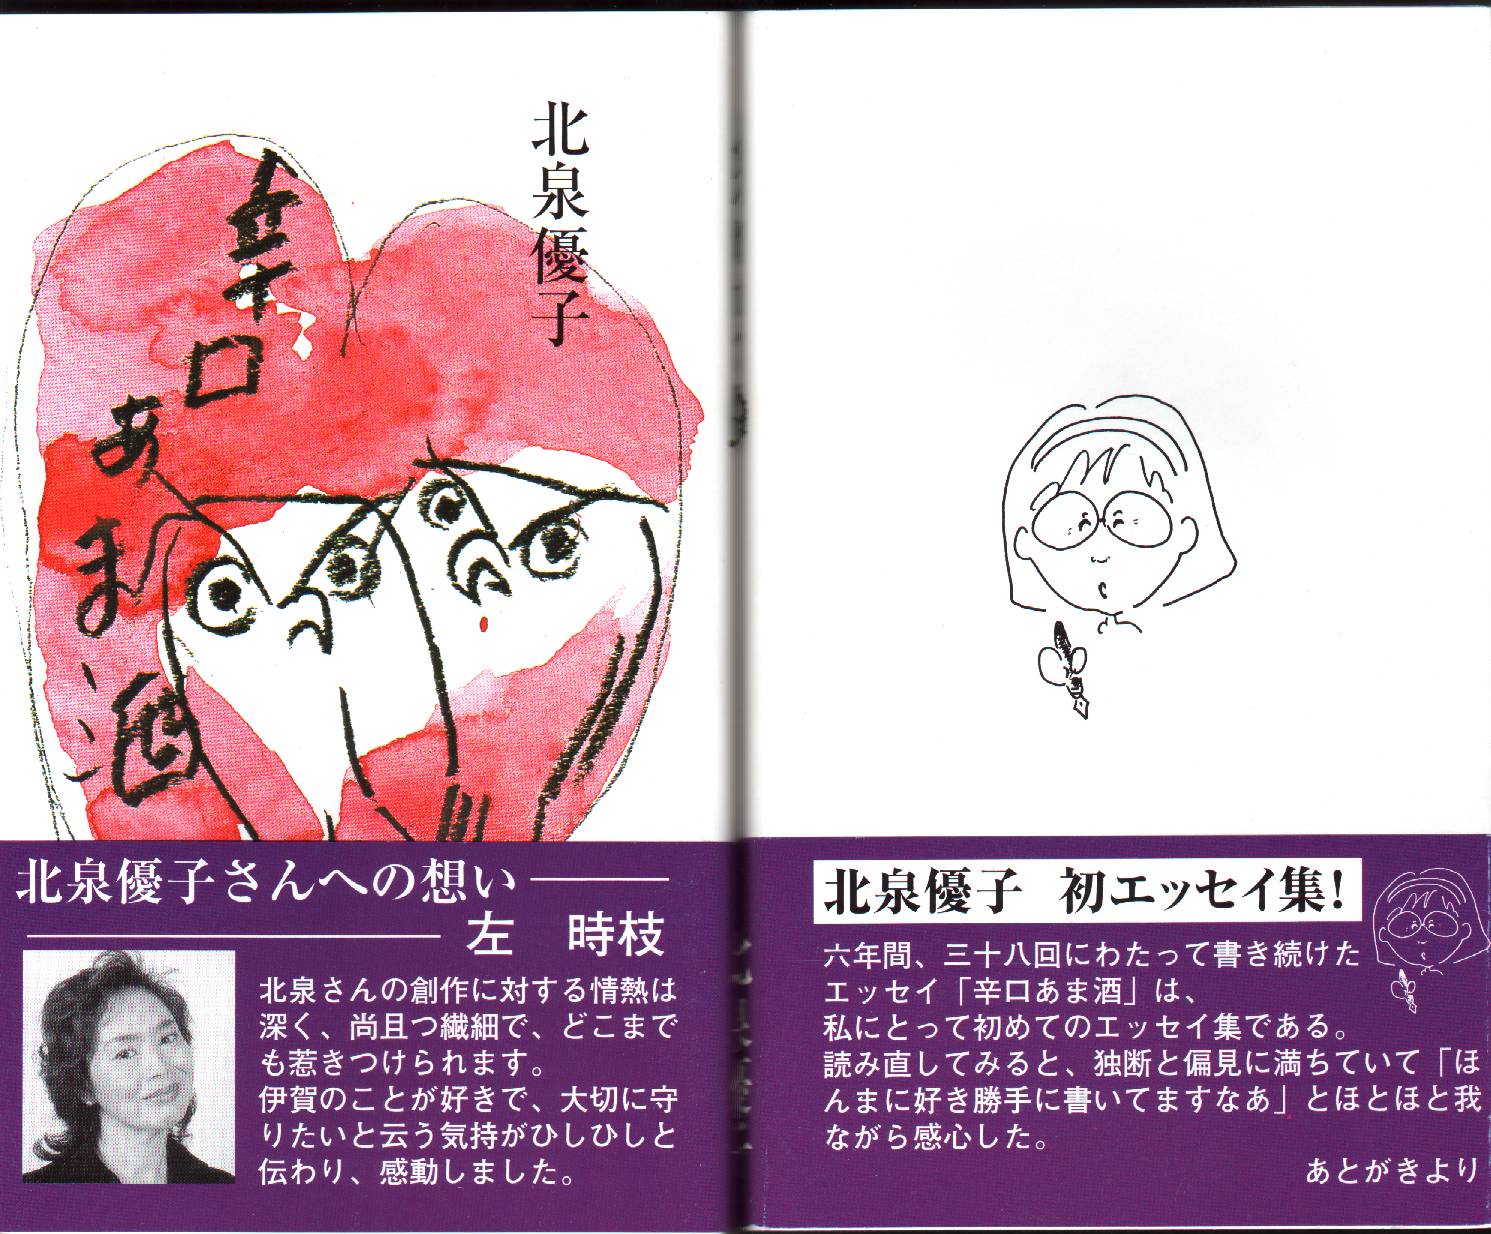 北泉優子
辛口
あま酒
北泉優子さんへの想い
左　時枝
北泉さんの創作に対する情熱は
深く、尚且つ繊細で、どこまで
も惹きつけられます。
伊賀のことが好きで、大切に守
りたいと云う気持がひしひしと
伝わり、感動しました。
北泉優子　初エッセイ集！
六年間、三十八回にわたって書き続けた
エッセイ「辛口あま酒」は、
私にとって初めてのエッセイ集である。
読み直してみると、独断と偏見に満ちていて「ほ
んまに好き勝手に書いてますなあ」とほとほと我
ながら感心した。
あとがきより